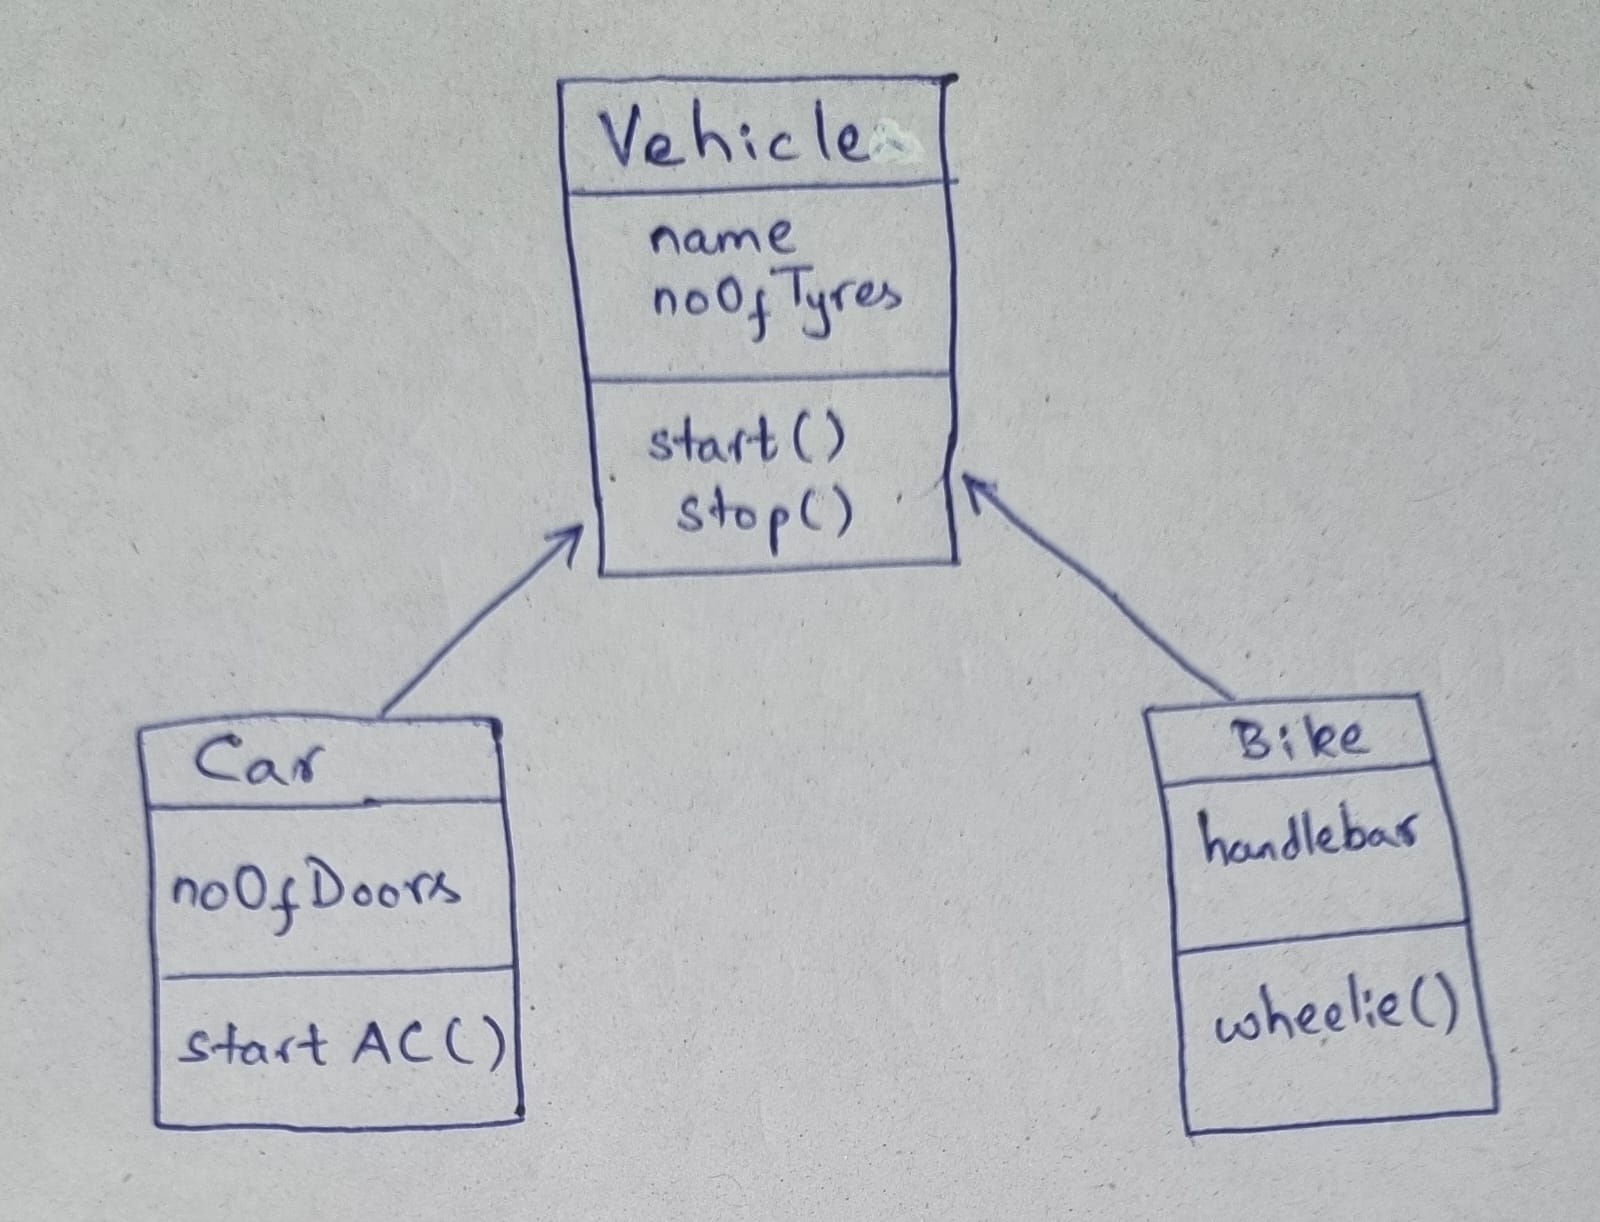 Vehicle
name
noOfTyres
start()
stop()
Car
noOfDoors
start AC()
Bike
handlebar
wheelie()